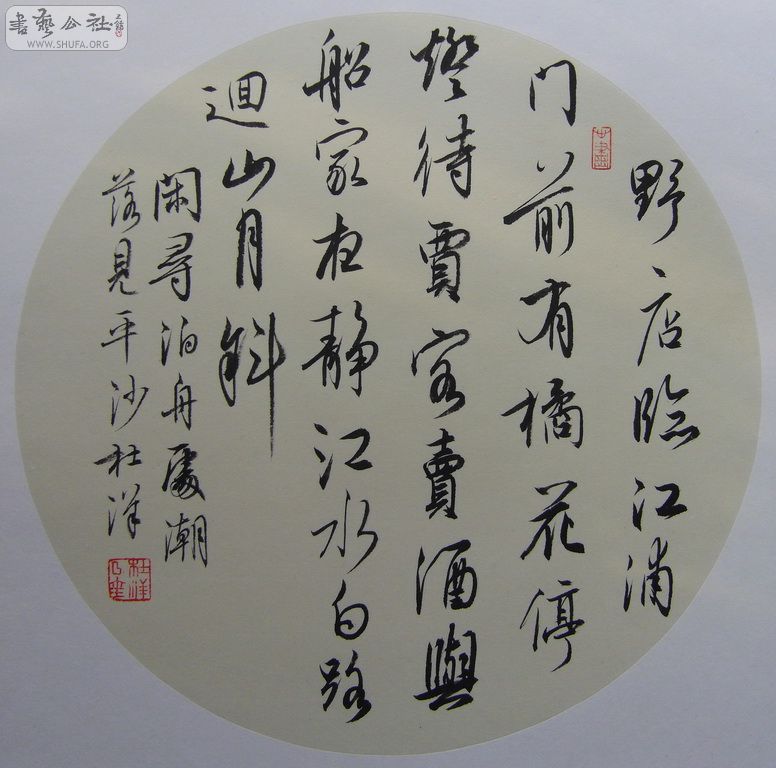 書藝公社
WWW.SHUFA.ORG
野店臨江浦
门前有橘花停
燈待賈客賣酒與
船家夜静江水白路
迴山月斜
閑尋泊舟處潮
落見平沙杜洋